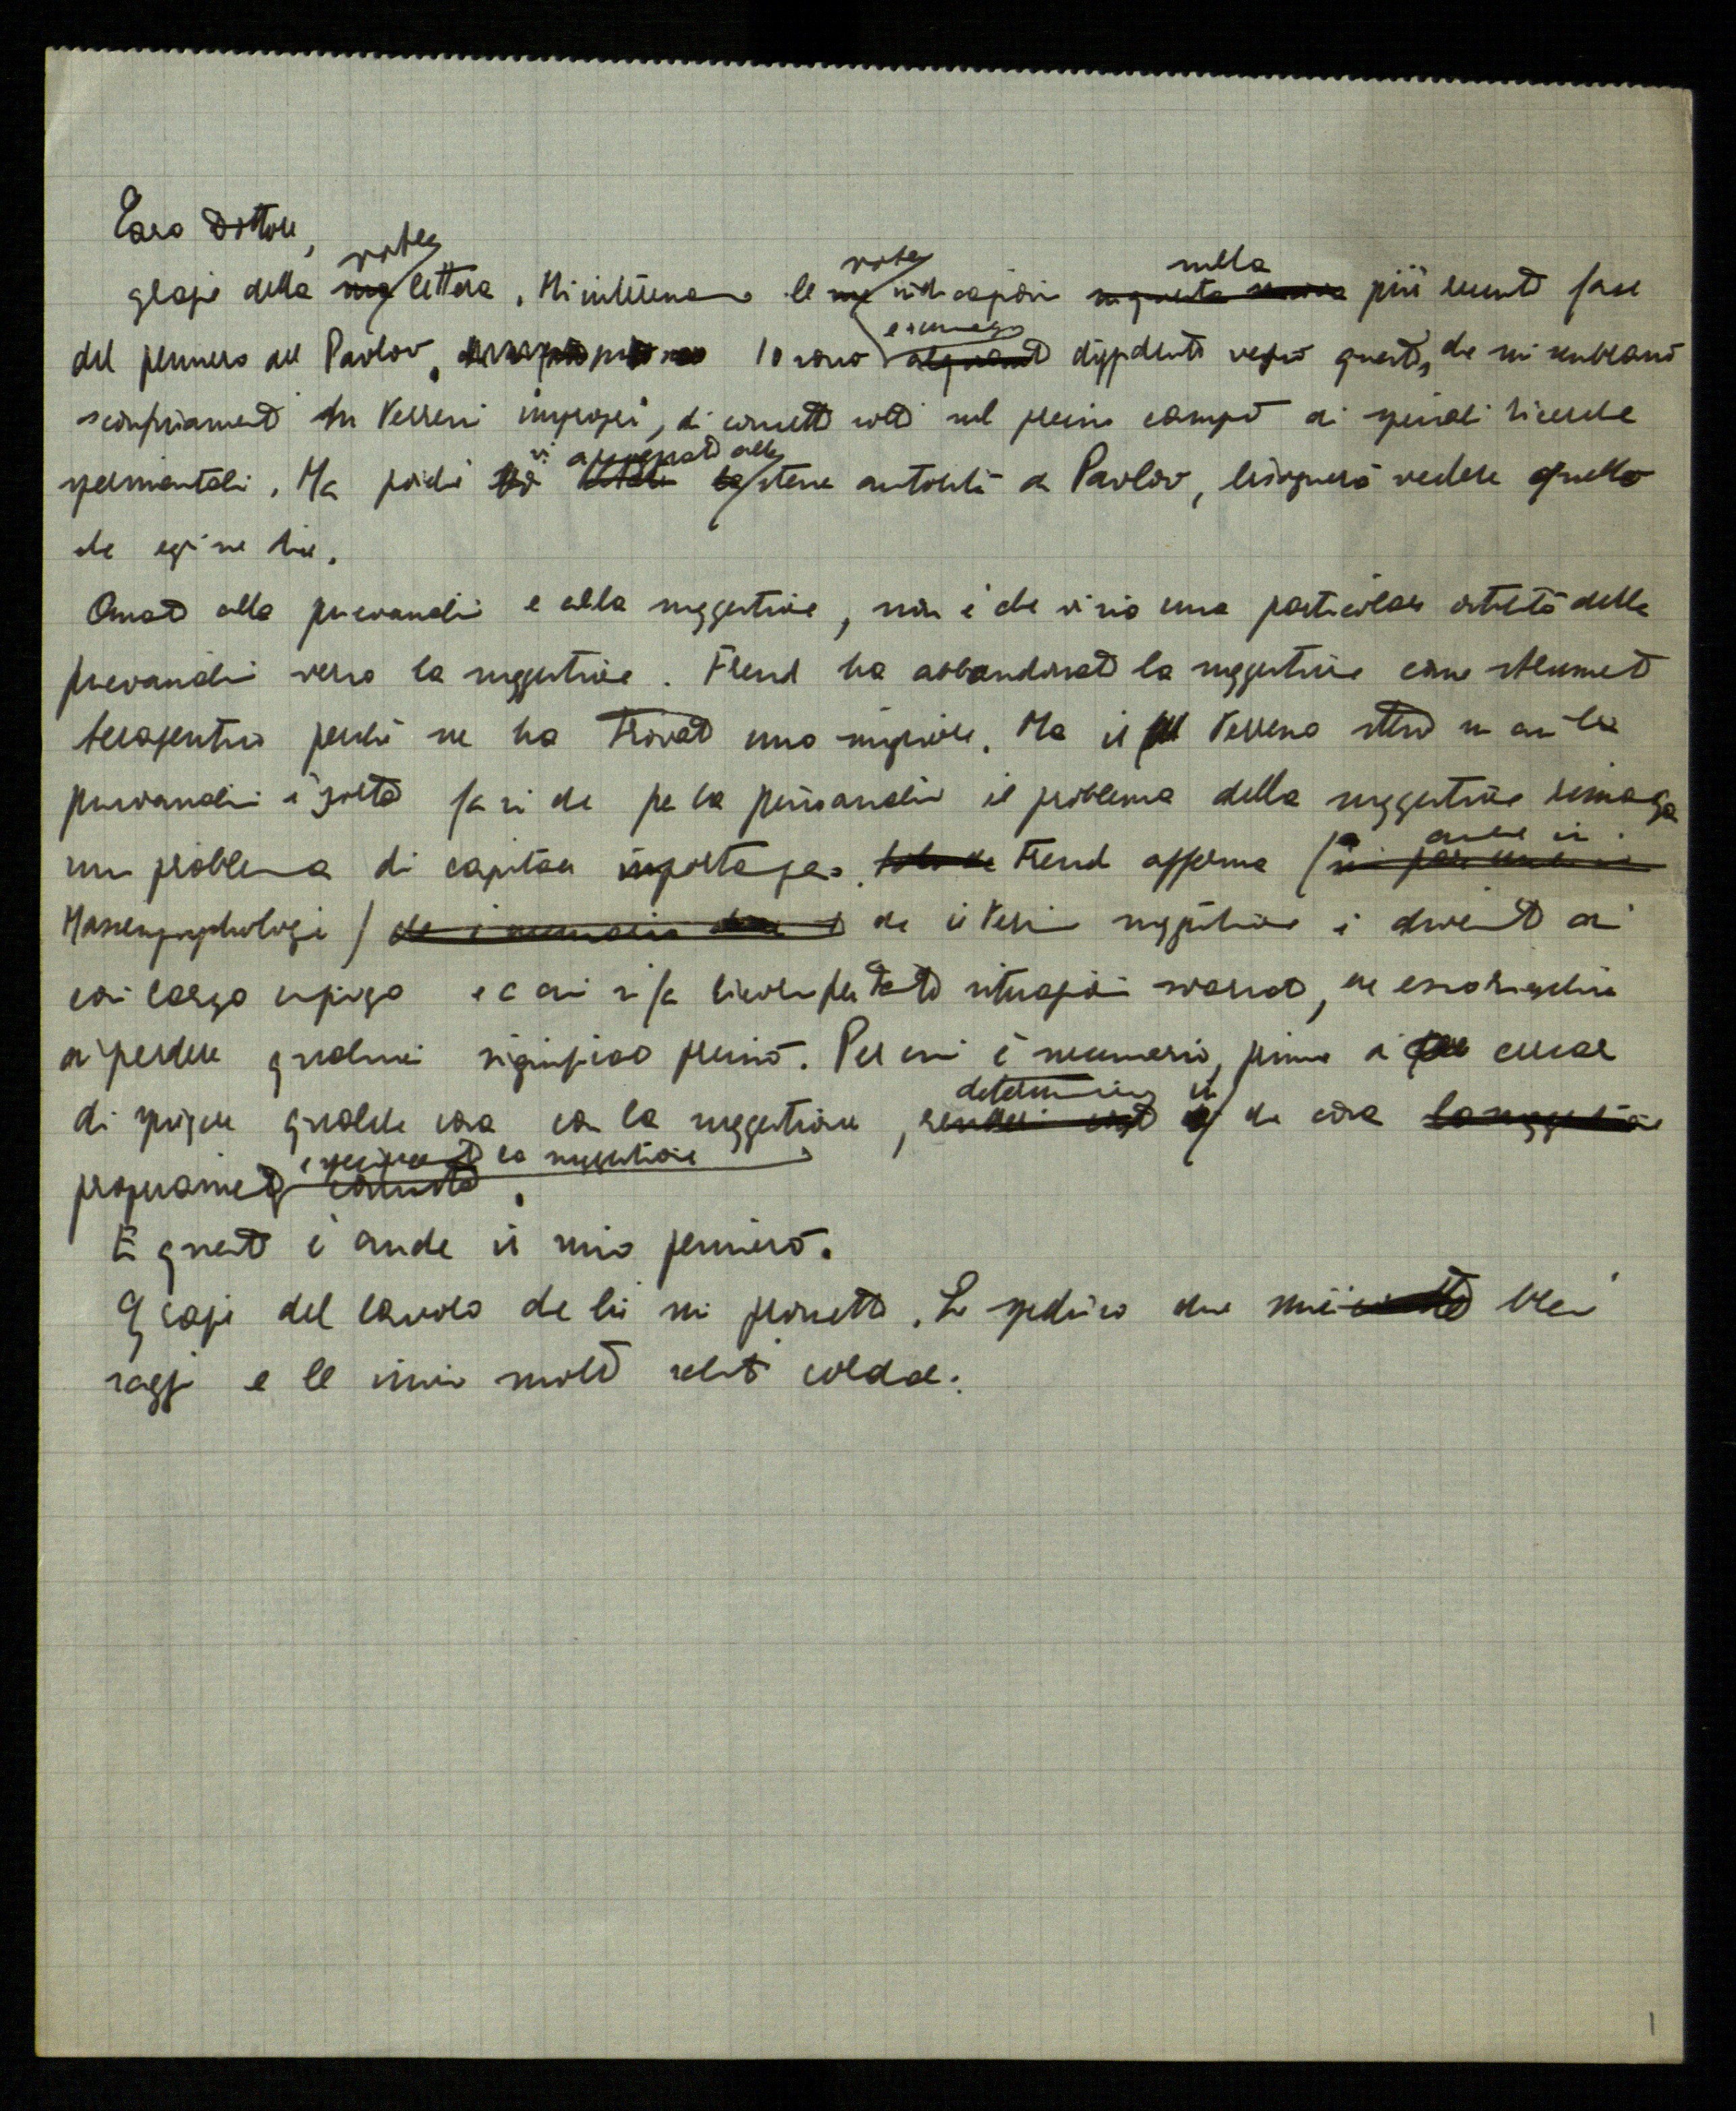 Caro Dottore,
grazie della vostra lettera. Mi interessano le vostre indicazioni sulla più recente fase
del pensiero del Pavlov. Io sono diffidente verso queste, che mi sembrano
sconfinamenti in terreni impropri, di concetti solo nel preciso campo di speciali ricerche
sperimentali. Ma poiché vi appellate alla stessa autorità di Pavlov, bisognerà vedere quello
che egli ne dice.
Quanto alla psicoanalisi e alla suggestione, non è che vi sia una particolare ostilità della
psicoanalisi verso la suggestione. Freud ha abbandonato la suggestione come strumento
terapeutico perché ne ha trovato uno migliore. Ma il terreno stesso su cui la
psicoanalisi è sorta fa sì che per la psicoanalisi il problema della suggestione rimanga
un problema di capitale importanza. Freud afferma (anche in
Massenpsychologie) che il termine suggestione è diventato di
così largo impiego e a cui si fa ricorso per tante situazioni svariate, che esso rischia
di perdere qualsiasi significato preciso. Per cui è necessario, prima di cercare
di spiegare qualche cosa con la suggestione, determinare in che cosa
propriamente la suggestione.
E questo è anche il mio pensiero.
Grazie del lavoro che lei mi promette. Le spedisco due miei brevi
saggi e le invio molti saluti cordiali.
1